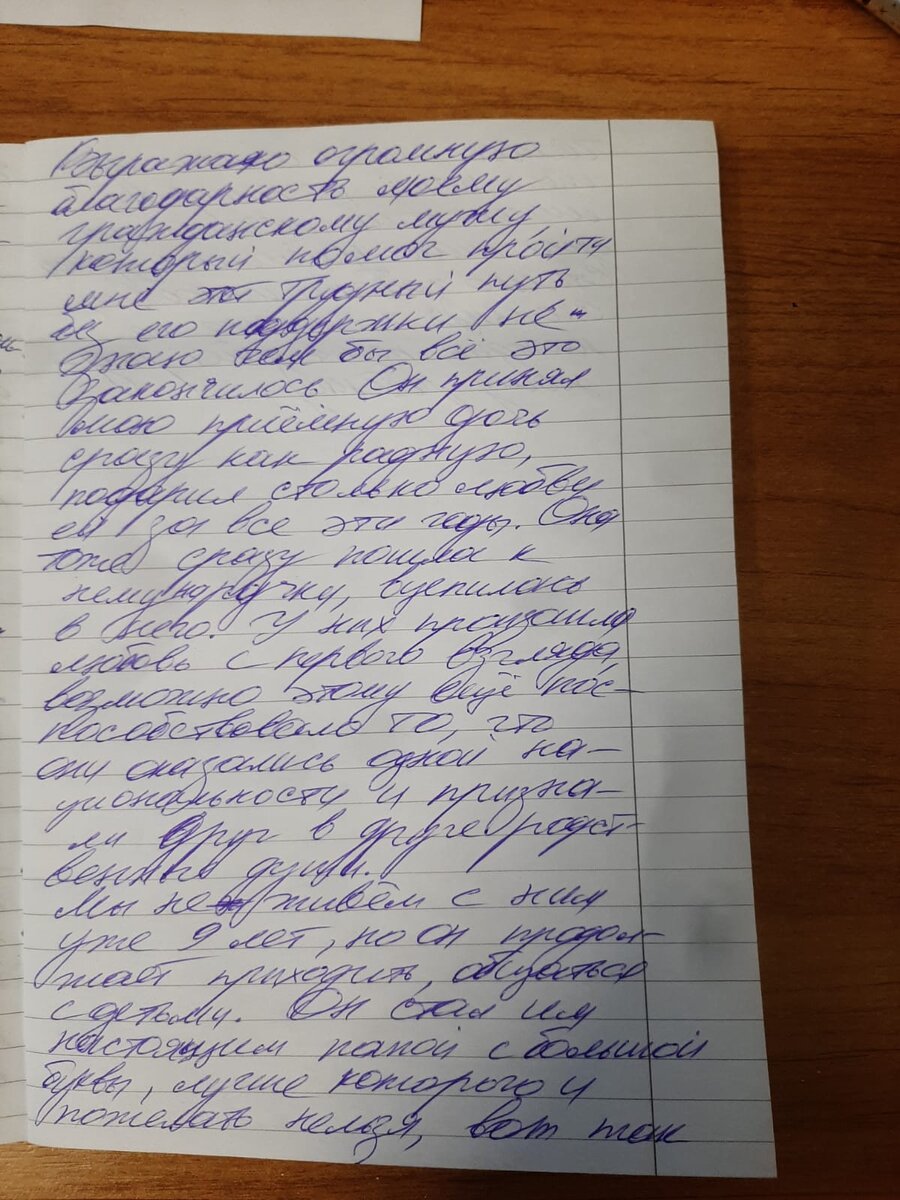 Выражаю огромную
благодарность моему
гражданскому мужу
который помог пройти
мне этот трудный путь
его поддержки не-
знаю чем бы всё это
закончилось Он принял
мою приёмную дочь
сразу как родную,
подарил столько любви
ей за все эти годы. Она
тоже сразу пошла к
нему на ручку, вцепилась
в него. У них произошла
любовь с первого взгляда,
возможно этому ещё пос-
пособствовало то, что
они оказались одной на-
циональности и призна-
ли друг в друге родст-
венные души.
Мы не живём с ним
уже 9 лет, но он продол-
жает приходить, общаться
с детьми. Он стал им
настоящим папой с большой
буквы, лучше которого и
пожелать нельзя, вот так